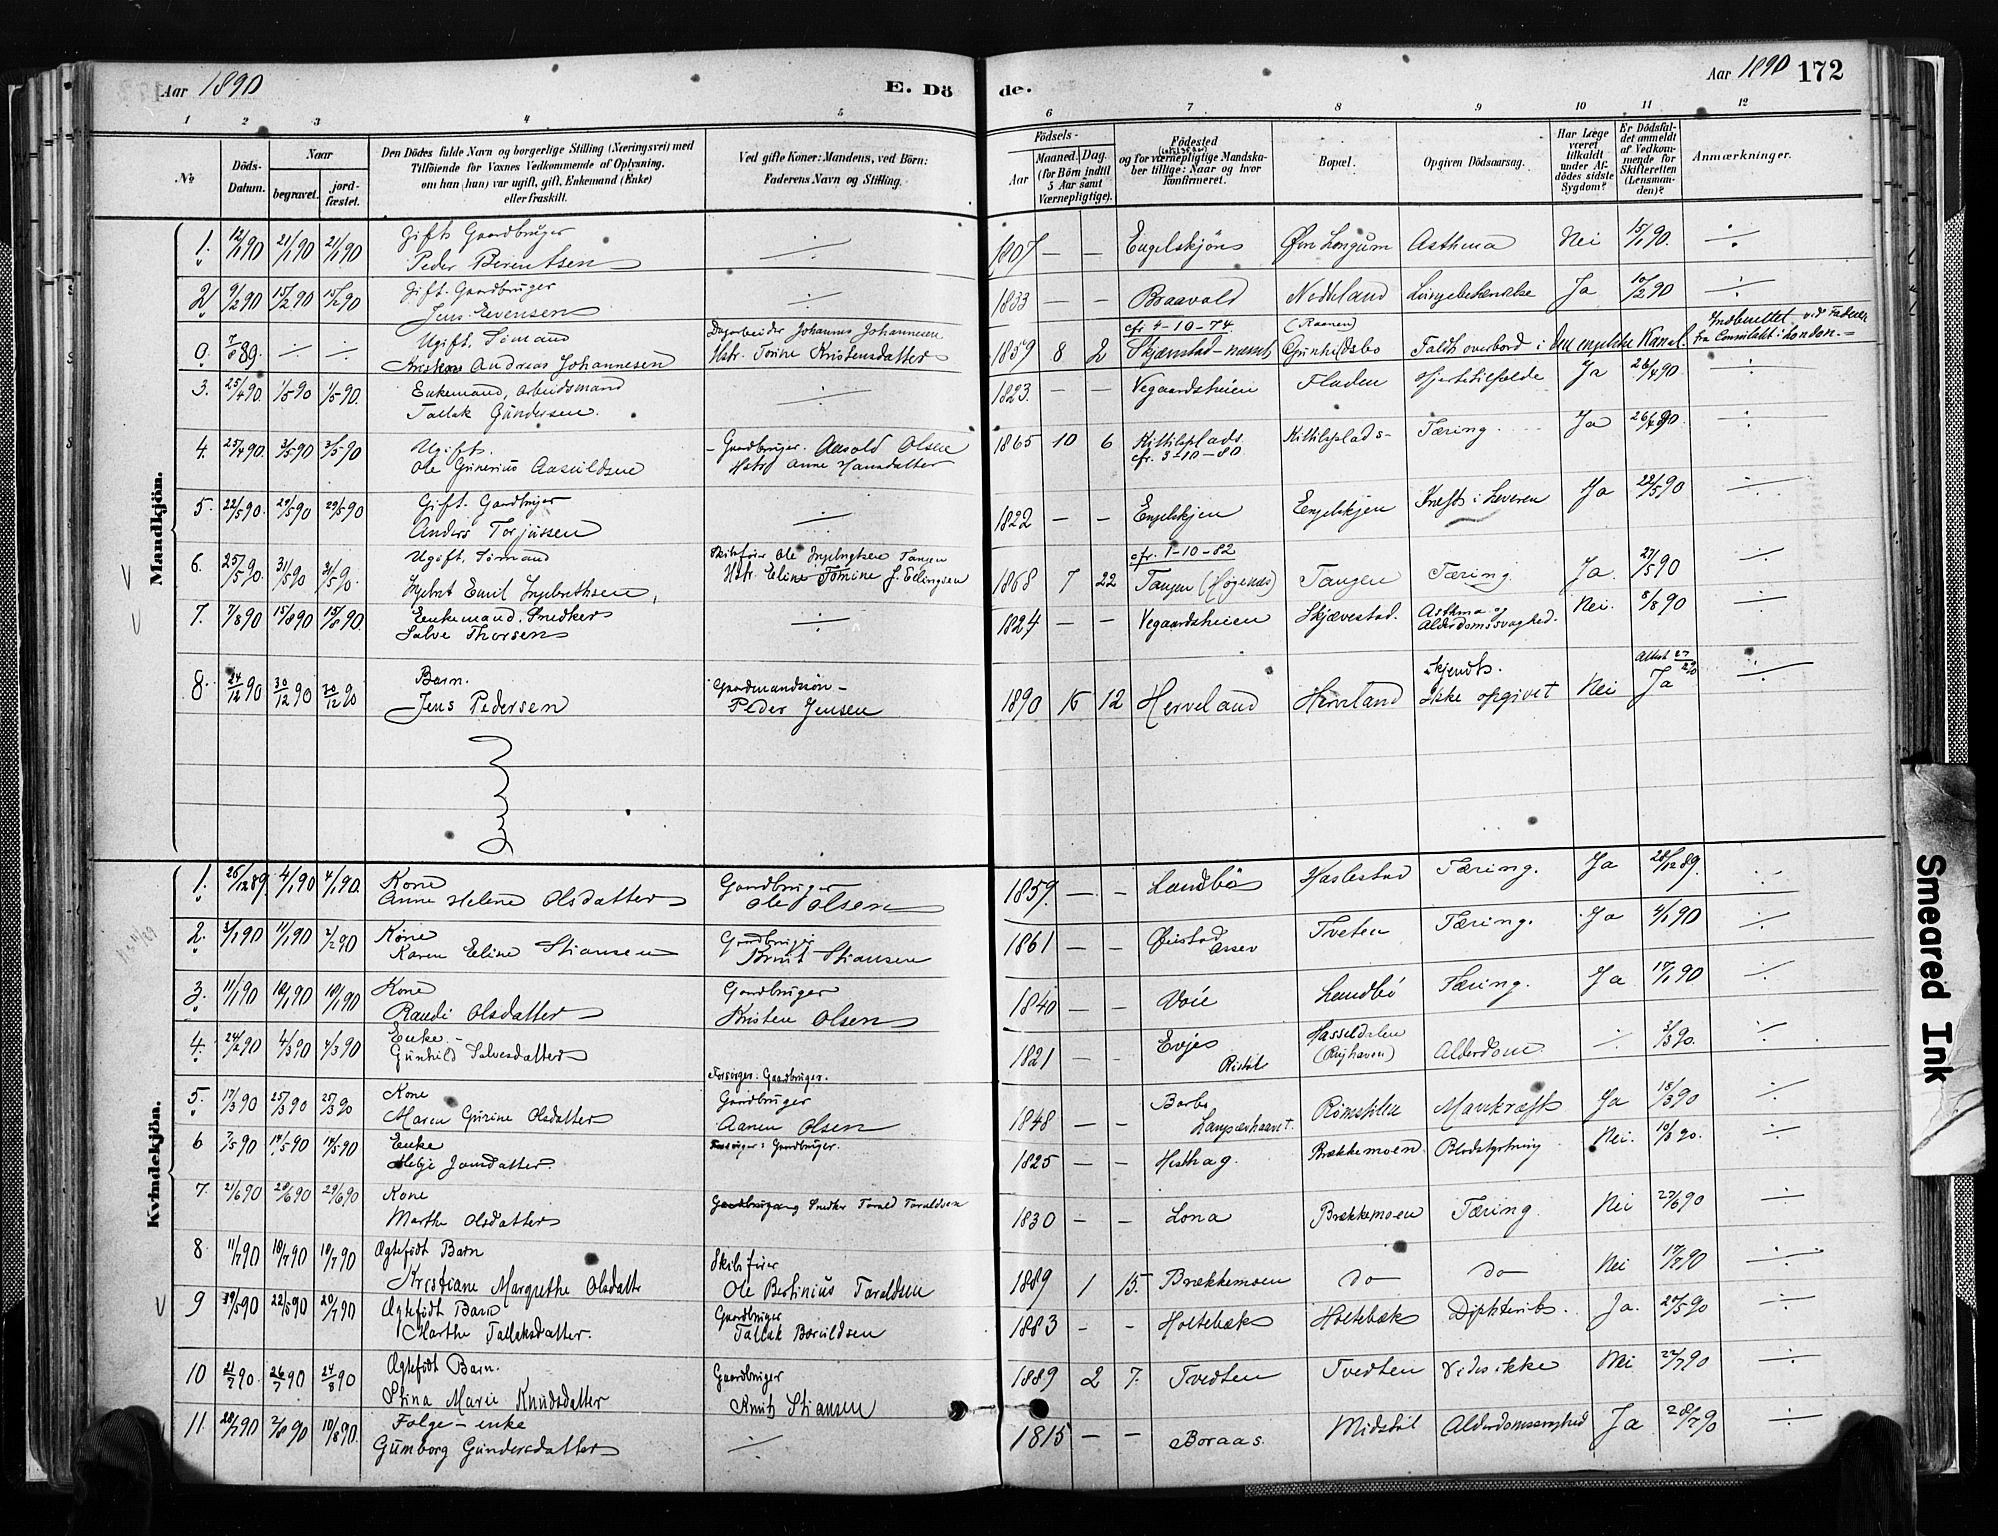 Aar 1890
E. Dö
de.
Aar 1890 172
1 2 3 4 5 6 7 8 9 10 11 12
No
Döds-Datum.
Naar
begravet.
jord-fæstet.
Den Dödes fulde Navn og borgerlige Stilling (Næringsvei) med
Tilföiende for Voxnes Vedkommende af Oplysning,
om han (hun) var ugift, gift, Enkemand (Enke)
eller fraskilt.
Ved gifte Koner: Mandens, ved Börn:
Faderens Navn og Stilling.
Födsels-
Aar
Maaned. Dag.
(for Börn indtil
5 Aar samt
Værnepligtige).
Födested
og for værnepligtige Mandska-
ber tillige: Naar og hvor
konfirmeret.
Bopæl.
Opgiven Dödsaarsag.
Har Læge
været
tilkaldt
under Af-
dödes sidste
Sygdom?
Er Dödsfal-
det anmeldt
af Vedkom-
mende for
Skifteretten
(Lensman-
den)?
Anmærkninger.
Mandkjön.
1. 12/1 90 21/1 90 21/1 90 Gift Gaardbruger
Peder Berentsen 1807 — — Engelskjöns Øvre Longum Asthma Nei 15/1 90.
2 9/2 90 15/2 90 15/2 90 Gift. Gaardbruger
Jens Evensen 1833 — — Braavold Neddeland Lungebetændelse Ja 10/2 90
0. 89. Ugift. Sömand
Andreas Johannesen
Dagarbeider Johannes Johannesen
Hstr. Torine Kristensdatter
1859 8 2 cfr 4-10-74.
Faldt overbord i Den engelske Kanal.
fra Consulatet i London.
3. 25/4 90. 1/5 90 1/5 90. Enkemand, Arbeidsmand
Tallak Gundersen. 1823. — — Vegaardsheien Fladen Hjertetilfælde Ja 26/4 90
4. 25/4 90. 3/5 90 3/5 90 Ugift.
Ole Gunerius Aasuldsen
Gaardbruger. Aasold Olsen
Hstr Anne Hansdatter
1865 10 6 Kittilsplads
cfr. 3-10-80 Kittilsplads Tæring. Ja
5. 22/5 90. 29/5 90 29/5 90 Gift. Gaardbruger
Anders Torjussen 1822 — — Engelskjen Engelskjen Kræft i Leveren Ja 22/5 90
6. 25/5 90. 31/5 90 31/5 90. Ugift. Sömand
Ingebret Emil Ingebrethsen
Skibsförer Ole Ingebregtsen Tangen
Hstr. Eline Tomine J. Ellingsen
cfr. 1-10-82
1868 7 22 Tangen Tangen Tæring. Ja. 27/5 90
7. 7/8 90 15/8 90 15/8 90. Enkemand. Snedker
Salve Thorsen 1824 — — Vegaardsheien Skjævestad. Asthma og
Alderdomssvaghed. Nei. 8/8 90
8. 24/12 90 30/12 90 30/12 90 Barn.
Jens Pedersen
Gaardmandssön
Peder Jensen
1890 12 Herveland Herveland Skjendt.
Ikke opgivet Nei Ja
Kvindekjön.
1. 26/12 89. 4/1 90 4/1 90. Kone
Anne Helene Olsdatter
Gaardbruger
Ole Olsen
1859. — — Landbö Haslestad Tæring. Ja 28/12 89.
2. 3/1 90 11/1 90 2/2 90 Kone
Karen Eline Stiansen
Gaardbruger
Stiansen
1861 — — Øiestad Tveten Tæring. Ja 4/1 90
3. 11/1 90 19/1 90 19/1 90 Kone
Randi Olsdatter
Gaardbruger
Kristen Olsen
1840 — — Voie Landbö Tæring. Ja 17/1 90
4. 24/2 90 4/3 90 4/3 90 Enke
Gunhild Salvesdatter 1821 — — Evje Hasseldalen Alderdom 3/3 90.
Forsorger: Gaardbruger.
5. 17/3 90 25/3 90 25/3 90 Kone
Maren Gurine Olsdatter
Gaardbruger
Aanen Olsen
1848 — — Barbo Ja 18/3 90
6 7/5 90 14/5 90 14/5 90 Enke
Helje Jonsdatter.
1825 — — Hesthag. Brækkemoen Blodstyrtning Nei.
7. 21/6 90 28/6 90 29/6 90 Kone
Marthe Olsdatter
Snedker Torald Toraldsen
1830 — — Lona Brækkemoen Tæring. Nei 27/6 90
8. 11/7 90 19/7 90 19/7 90 Ægtefödt Barn
Kristiane Margrethe Olsdatter
Skibsförer
Ole Bertinius Taraldsen
1889 1 15. Brækkemoen do do Nei 17/7 90
9 19/5 90 22/5 90 20/7 90 Ægtefödt Barn
Marthe Tallaksdatter.
Gaardbruger
Tallak Boruldsen
1883 — — Holtebæk Holtebæk Diphterits. Ja. 20/5 90
10 21/7 90. 26/7 90 24/8 90 Ægtefödt Barn.
Stina Marie Knudsdatter
Gaardbruger
Knut Stiansen
1889 2 7. Tvedten Tvedten Vides ikke Nei 22/7 90
11. 28/7 90 2/8 90 10/8 90. Folge-enke
Gumborg Gundersdatter 1815 — — Boraas. Midstöl Alderdomssvaghed Ja 28/7 90
Smeared Ink